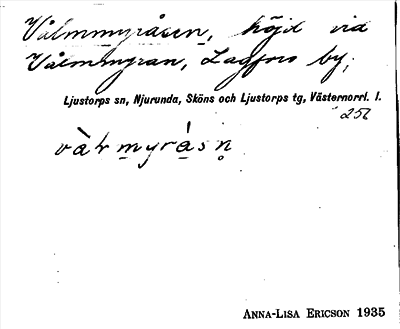 Välmmyråsen, höjd vid
Välmmyran, Lagfors by,
Ljustorps sn, Njurunda, Sköns och Ljustorps tg, Västernorrl. l.
ANNA-LISA ERICSON 1935